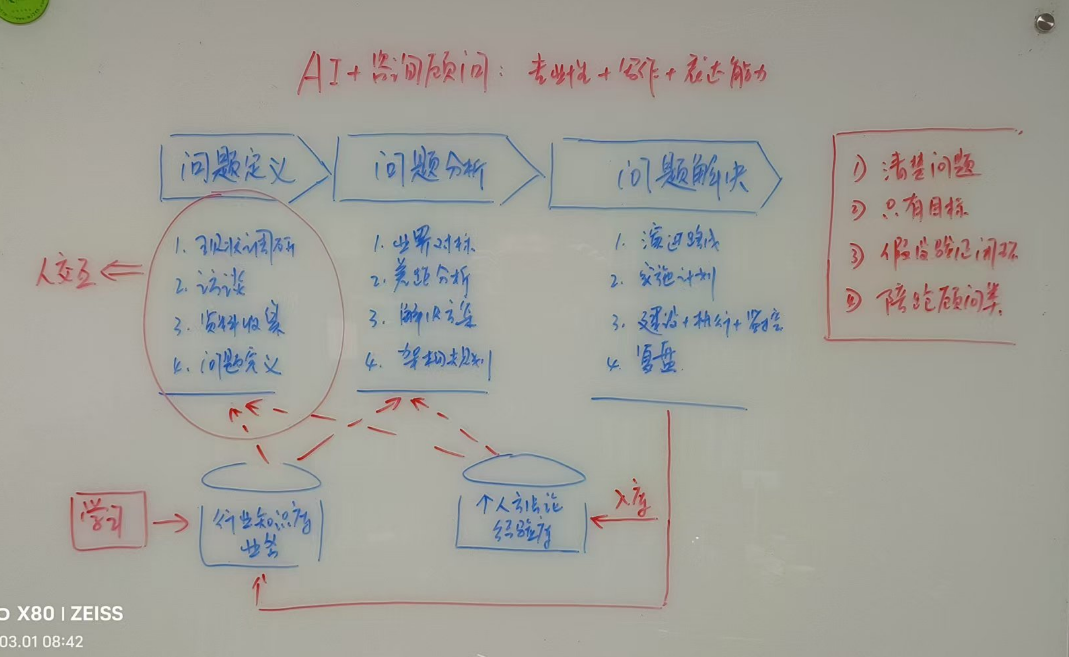 AI+咨询顾问：专业性+写作+表达能力
问题定义
问题分析
问题解决
1. 现状调研
2. 访谈
3. 资料收集
4. 问题定义
1. 业界对标
2. 差距分析
3. 解决方案
4. 架构规划
1. 演进路线
2. 实施计划
3. 建设+执行+监控
4. 复盘
① 清楚问题
② 只有目标
③ 假设验证闭环
④ 陪跑顾问类
人交互
学习
行业知识库
业务
个人方法论
经验库
入库
X80 | ZEISS
03.01 08:42